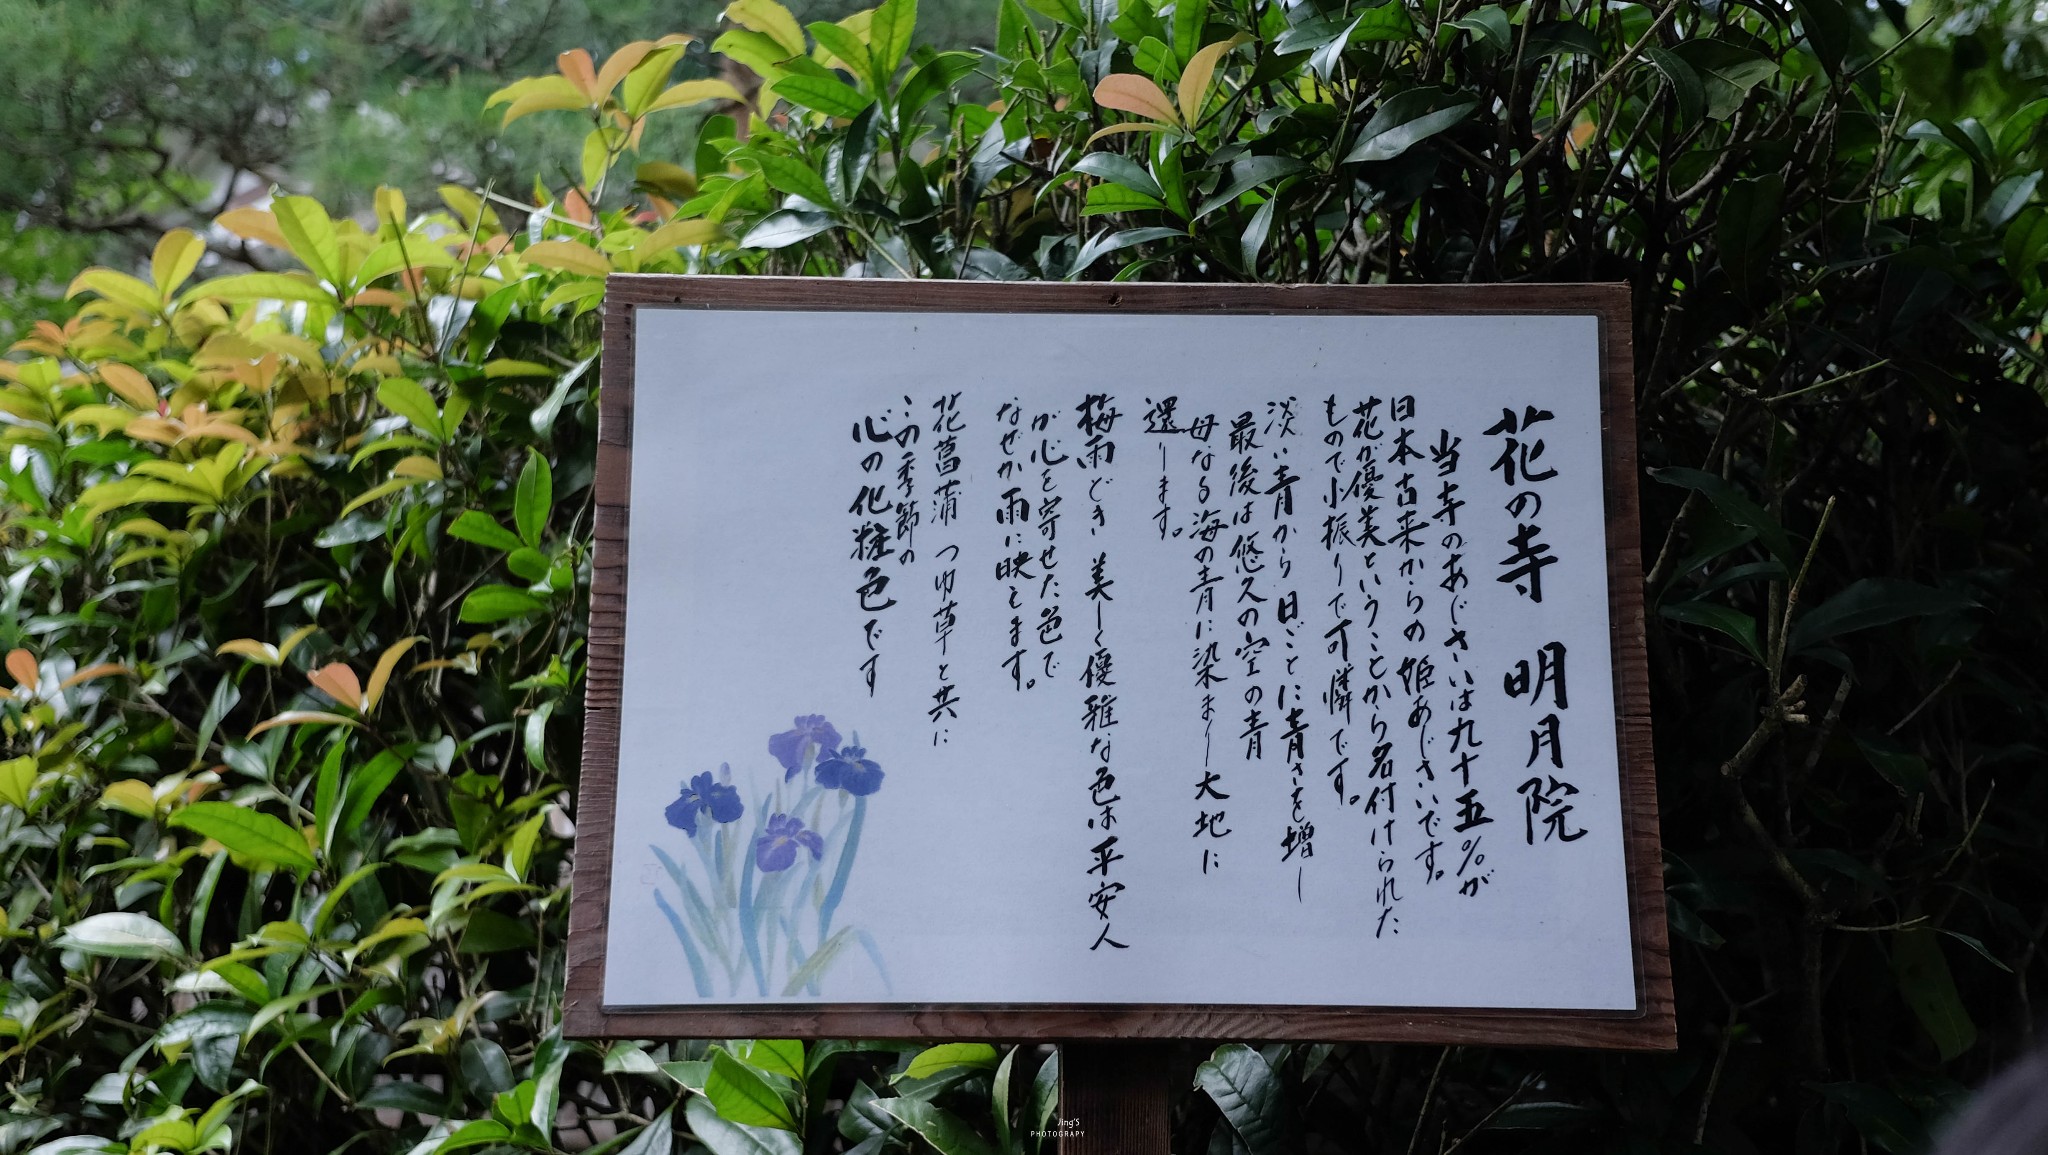 花の寺 明月院
当寺のあじさいは九十五%が
日本古来からの姫あじさいです。
花が優美ということから名付けられた
もので小振りで可憐です。
淡い青から日ごとに青さを増し
最後は悠久の空の青
母なる海の青に染まり大地に
還ります。
梅雨どき 美しく優雅な色は平安人
が心を寄せた色で
なぜか雨に映えます。
花菖蒲 つゆ草と共に
この季節の
心の化粧色です
Jing'S
PHOTOGRAPY